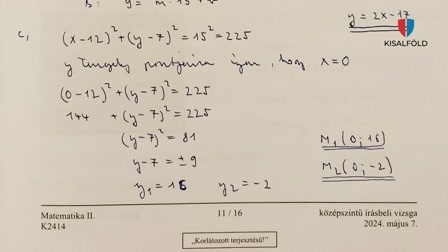 B: y = m·15 + b
y = 2x - 17
KISALFÖLD
c, (x-12)² + (y-7)² = 15² = 225
y tengely pontjaira igaz, hogy x=0
(0-12)² + (y-7)² = 225
144 + (y-7)² = 225
(y-7)² = 81
M₁(0; 16)
y-7 = ±9
M₂(0; -2)
y₁ = 16 y₂ = -2
Matematika II. 11 / 16 középszintű írásbeli vizsga
K2414 2024. május 7.
„Korlátozott terjesztésű!”